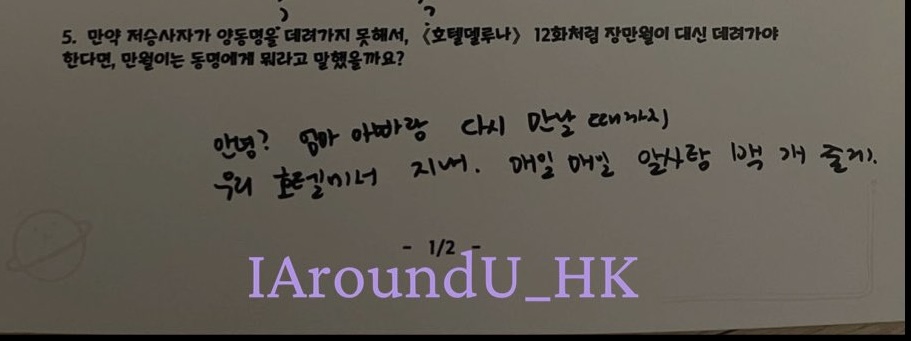 5. 만약 저승사자가 양동명을 데려가지 못해서, 〈호텔델루나〉 12화처럼 장만월이 대신 데려가야
한다면, 만월이는 동명에게 뭐라고 말했을까요?
안녕? 엄마 아빠랑 다시 만날 때까지
우리 호텔에서 지내. 매일 매일 알사탕 백 개 줄게.
- 1/2 -
IAroundU_HK